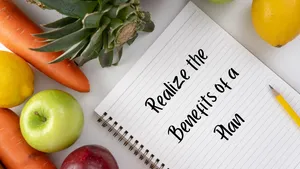 Realize the
Benefits of a
Plan